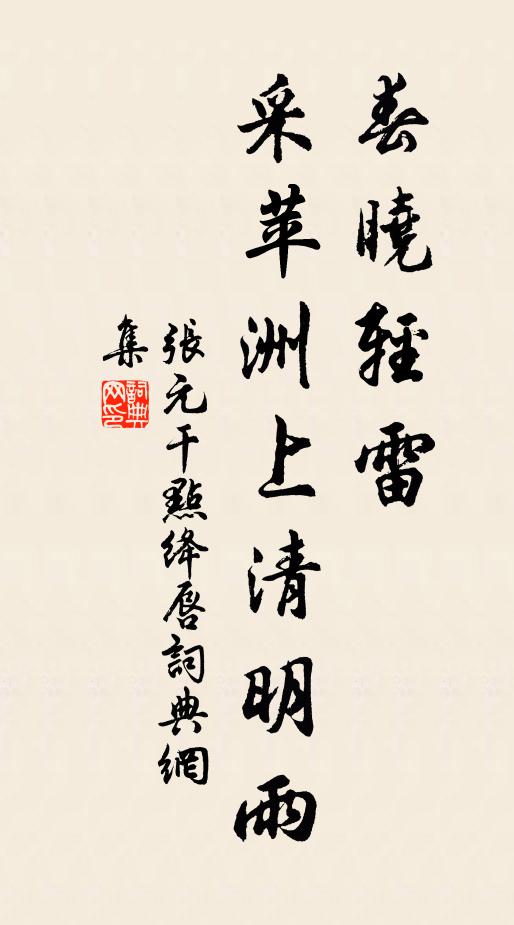 春曉輕雷
采苹洲上清明雨
張元干點絳唇詞典網
集
詞典
网印